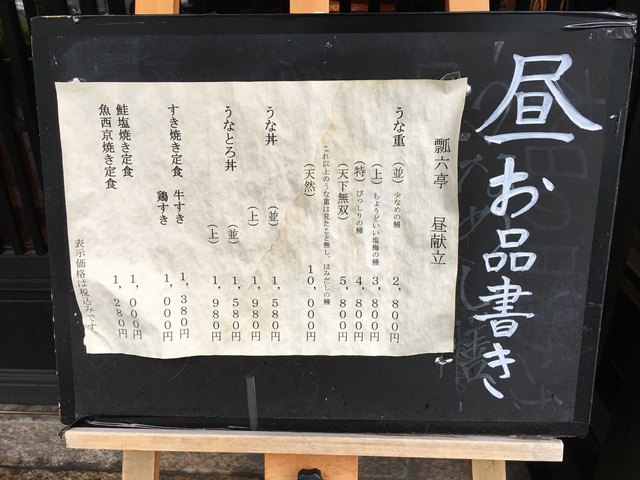 昼お品書き
瓢六亭　昼献立
うな重　（並）　少なめの鰻　２，８００円
（上）　ちょうどいい塩梅の鰻　３，８００円
（特）　びっしりの鰻　４，８００円
（天下無双）　５，８００円
これ以上のうな重は見たこと無し、はみだしの鰻
（天然）　１０，０００円
うな丼　（並）　１，５８０円
（上）　１，９８０円
うなとろ丼　（並）　１，５８０円
（上）　１，９８０円
すき焼き定食　牛すき　１，３８０円
鶏すき　１，０００円
鮭塩焼き定食　１，０００円
魚西京焼き定食　１，２８０円
表示価格は税込みです